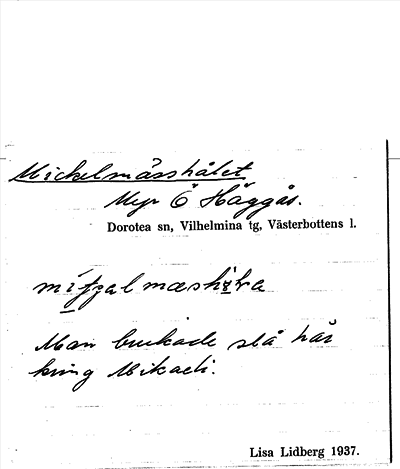 Mickelmässhålet
Myr Ö Häggås.
Dorotea sn, Vilhelmina tg, Västerbottens l.
Man brukade slå här
kring Mikaeli.
Lisa Lidberg 1937.